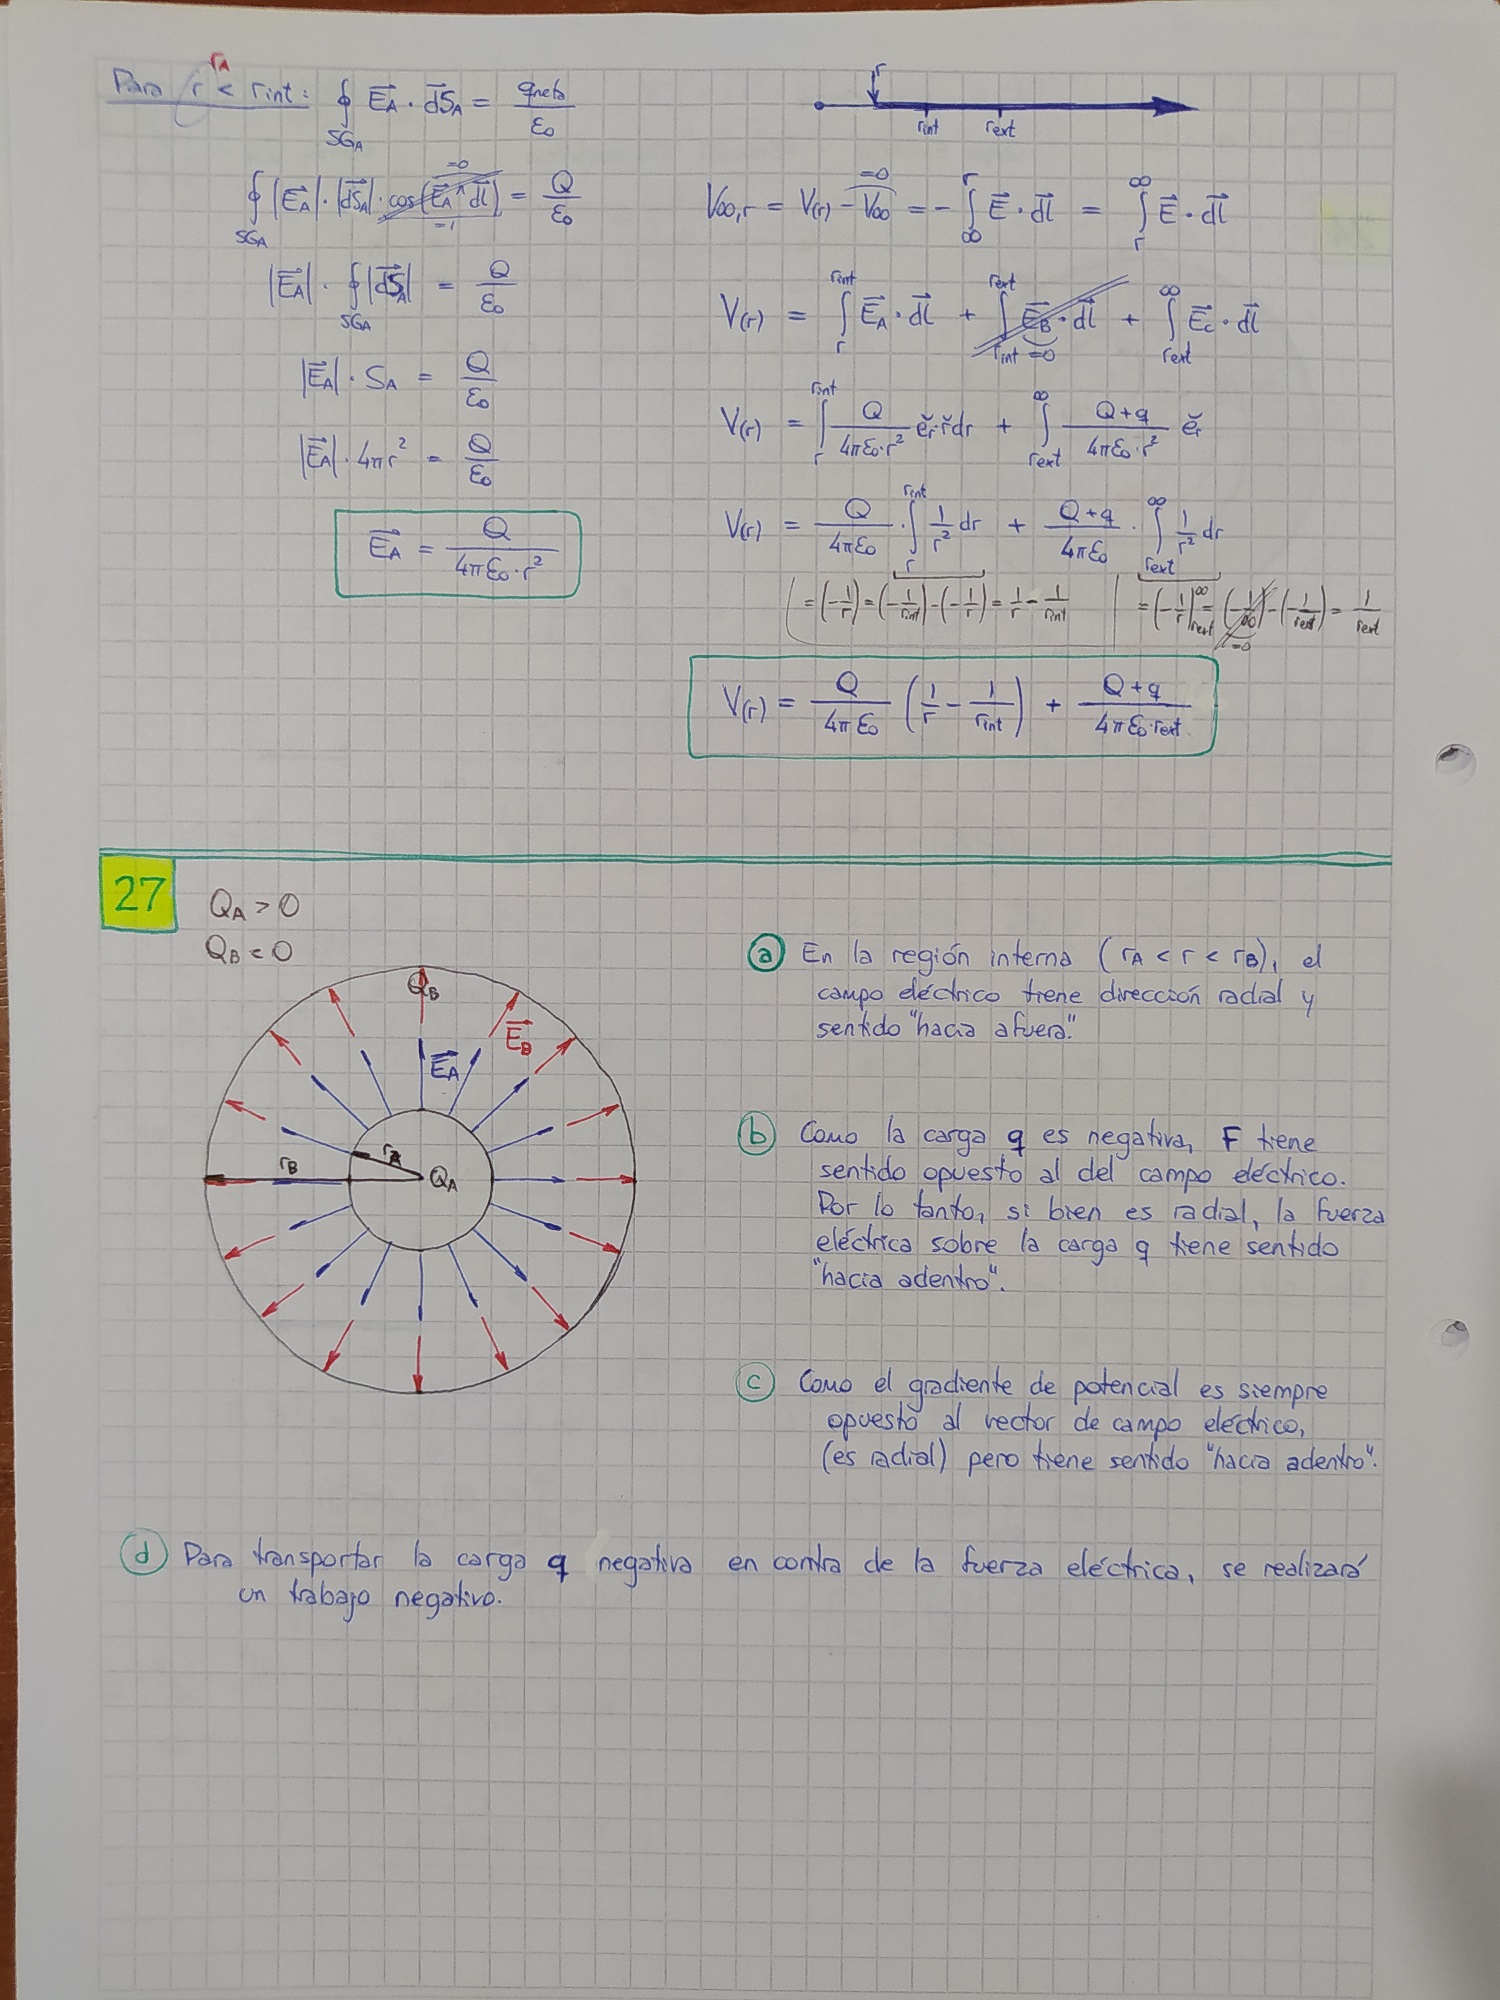 Para r < rint: ∮ E⃗A · d⃗SA = qneta/ε0
rA
SGA
∮ |E⃗A| · |d⃗SA| · cos(E⃗A ^ d⃗l) = Q/ε0
=0
=1
SGA
|E⃗A| · ∮ |d⃗SA| = Q/ε0
SGA
|E⃗A| · SA = Q/ε0
|E⃗A| · 4πr² = Q/ε0
E⃗A = Q/(4πε0·r²)
r
rint rext
V∞,r = V(r) - V∞ = -∫∞^r E⃗ · d⃗l = ∫r^∞ E⃗ · d⃗l
=0
V(r) = ∫r^rint E⃗A · d⃗l + ∫rint^rext E⃗B · d⃗l + ∫rext^∞ E⃗c · d⃗l
=0
V(r) = ∫r^rint Q/(4πε0·r²) ĕr·r̆dr + ∫rext^∞ (Q+q)/(4πε0·r²) ĕr
V(r) = Q/(4πε0) · ∫r^rint 1/r² dr + (Q+q)/(4πε0) · ∫rext^∞ 1/r² dr
= (-1/r) = (-1/rint) - (-1/r) = 1/r - 1/rint
= (-1/r|rext^∞ = (-1/∞) - (-1/rext) = 1/rext
=0
V(r) = Q/(4πε0) (1/r - 1/rint) + (Q+q)/(4πε0·rext)
27
QA > 0
QB < 0
QB
E⃗B
E⃗A
rA
rB
QA
a En la región interna (rA < r < rB), el
campo eléctrico tiene dirección radial y
sentido "hacia afuera".
b Como la carga q es negativa, F tiene
sentido opuesto al del campo eléctrico.
Por lo tanto, si bien es radial, la fuerza
eléctrica sobre la carga q tiene sentido
"hacia adentro".
c Como el gradiente de potencial es siempre
opuesto al vector de campo eléctrico,
(es radial) pero tiene sentido "hacia adentro".
d Para transportar la carga q negativa en contra de la fuerza eléctrica, se realizará
un trabajo negativo.